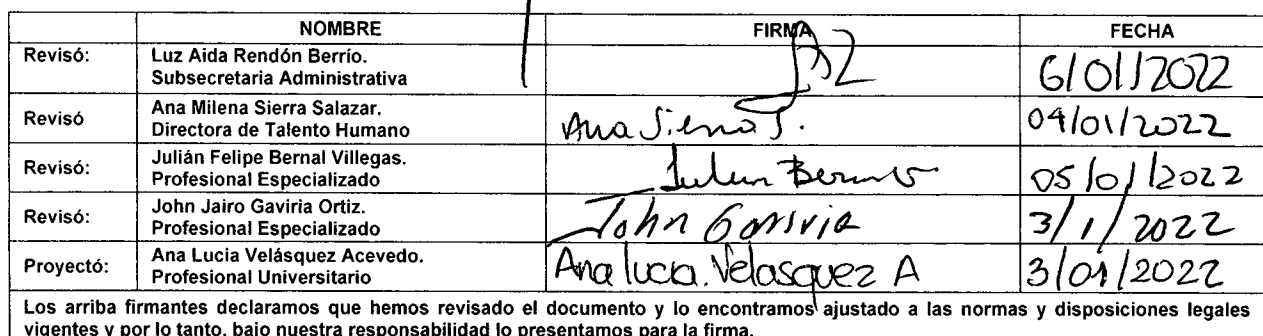 NOMBRE FIRMA FECHA
Revisó: Luz Aida Rendón Berrío.
Subsecretaria Administrativa 6/01/2022
Revisó Ana Milena Sierra Salazar.
Directora de Talento Humano Ana Sierra S. 04/01/2022
Revisó: Julián Felipe Bernal Villegas.
Profesional Especializado Julian Bernal 05/01/2022
Revisó: John Jairo Gaviria Ortiz.
Profesional Especializado John Gaviria 3/1/2022
Proyectó: Ana Lucia Velásquez Acevedo.
Profesional Universitario Ana lucia. Velasquez A 3/01/2022
Los arriba firmantes declaramos que hemos revisado el documento y lo encontramos ajustado a las normas y disposiciones legales
vigentes y por lo tanto, bajo nuestra responsabilidad lo presentamos para la firma.